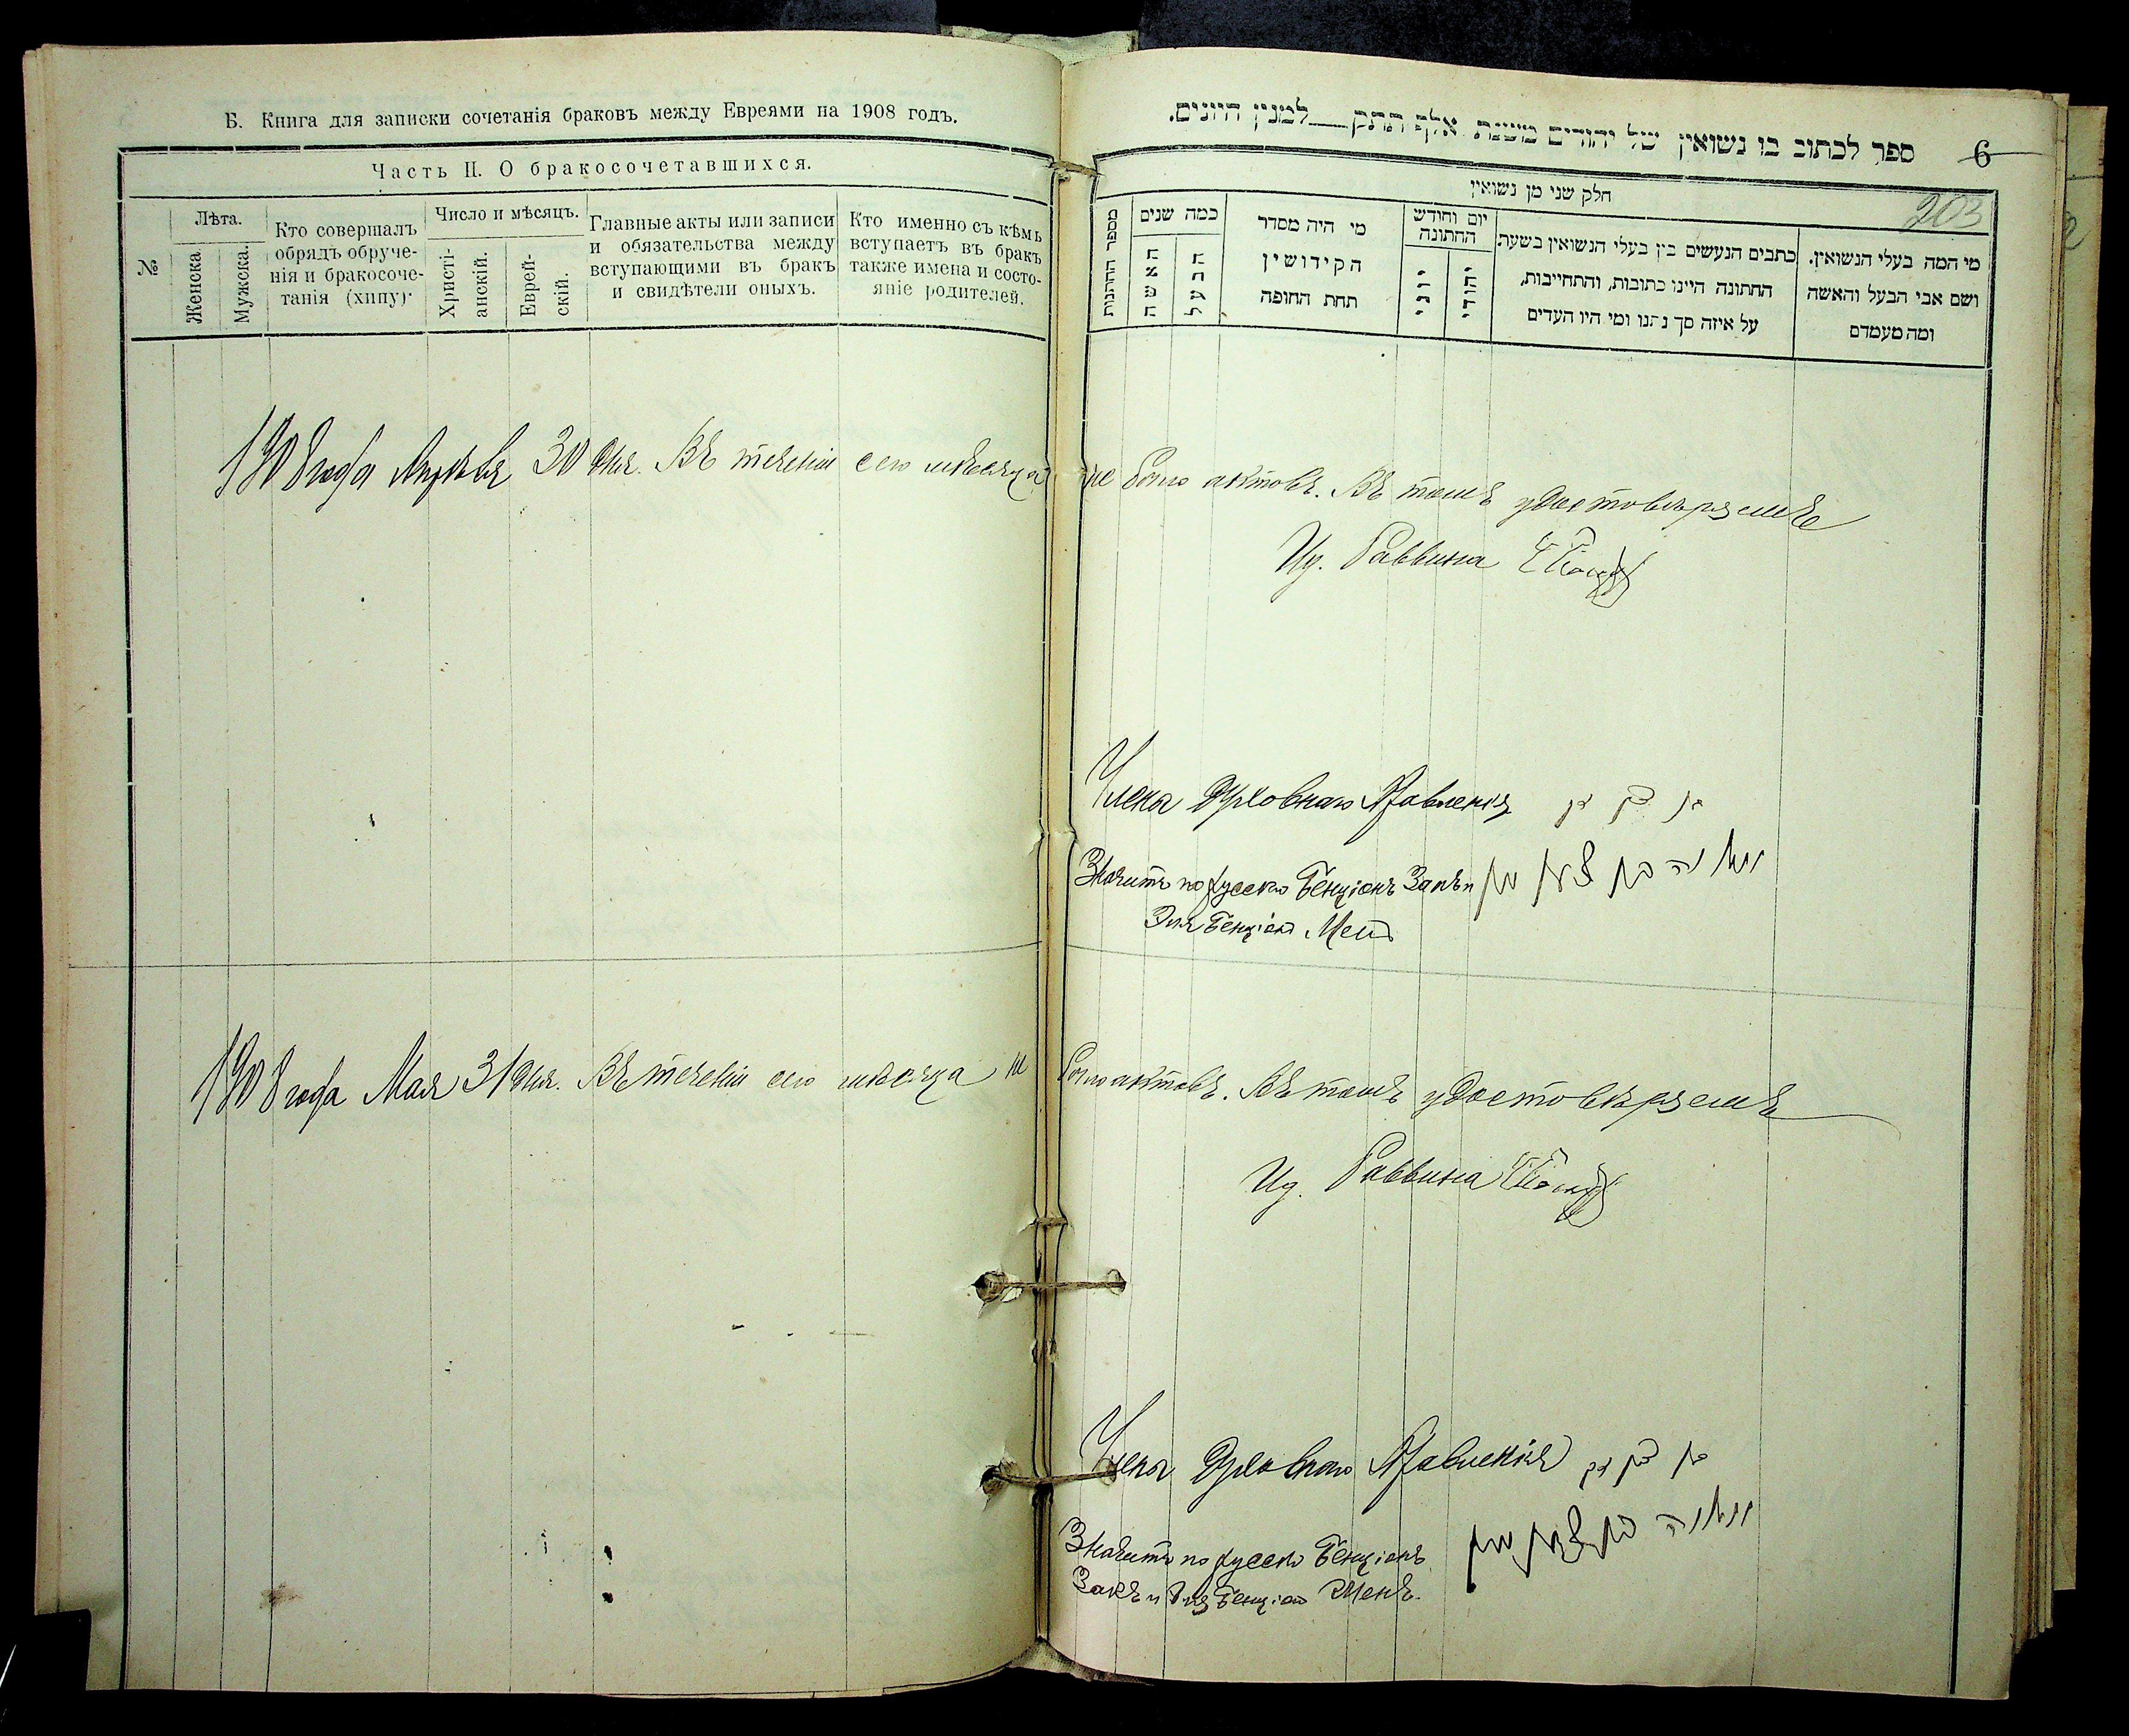 Б. Книга для записки сочетанія браковъ между Евреями на 1908 годъ.
Часть II. О бракосочетавшихся.
№
Лѣта.
Женска.
Мужска.
Кто совершалъ
обрядъ обруче-
нія и бракосоче-
танія (хипу)
Число и мѣсяцъ.
Христі-
анскій.
Еврей-
скій.
Главные акты или записи
и обязательства между
вступающими въ бракъ
и свидѣтели оныхъ.
Кто именно съ кѣмъ
вступаетъ въ бракъ
также имена и состо-
яніе родителей.
ספר לכתוב בו נשואין של יהודים משנת אלף תתק למנין היונים.
6
203
חלק שני מן נשואין
מספר החתנות
כמה שנים
האשה
הבעל
מי היה מסדר
הקידושין
תחת החופה
יום וחודש
החתונה
יוני
יהודי
כתבים הנעשים בין בעלי הנשואין בשעת
החתונה היינו כתובות, והתחייבות,
על איזה סך נתנו ומי היו העדים
מי המה בעלי הנשואין.
ושם אבי הבעל והאשה
ומה מעמדם
1908 года Апрѣля 30 дня. Въ теченіи сего мѣсяца не было актовъ. Въ томъ удостовѣряемъ
Ид. Раввина
Члена Духовнаго Правленія
Значитъ по русско Бенціонъ Закъ и
Эля Бенціонъ
1908 года Мая 31 дня. Въ теченіи сего мѣсяца не было актовъ. Въ томъ удостовѣряемъ
Ид. Раввина
Члена Духовнаго Правленія
Значитъ по русско Бенціонъ
Закъ и Эля Бенціонъ